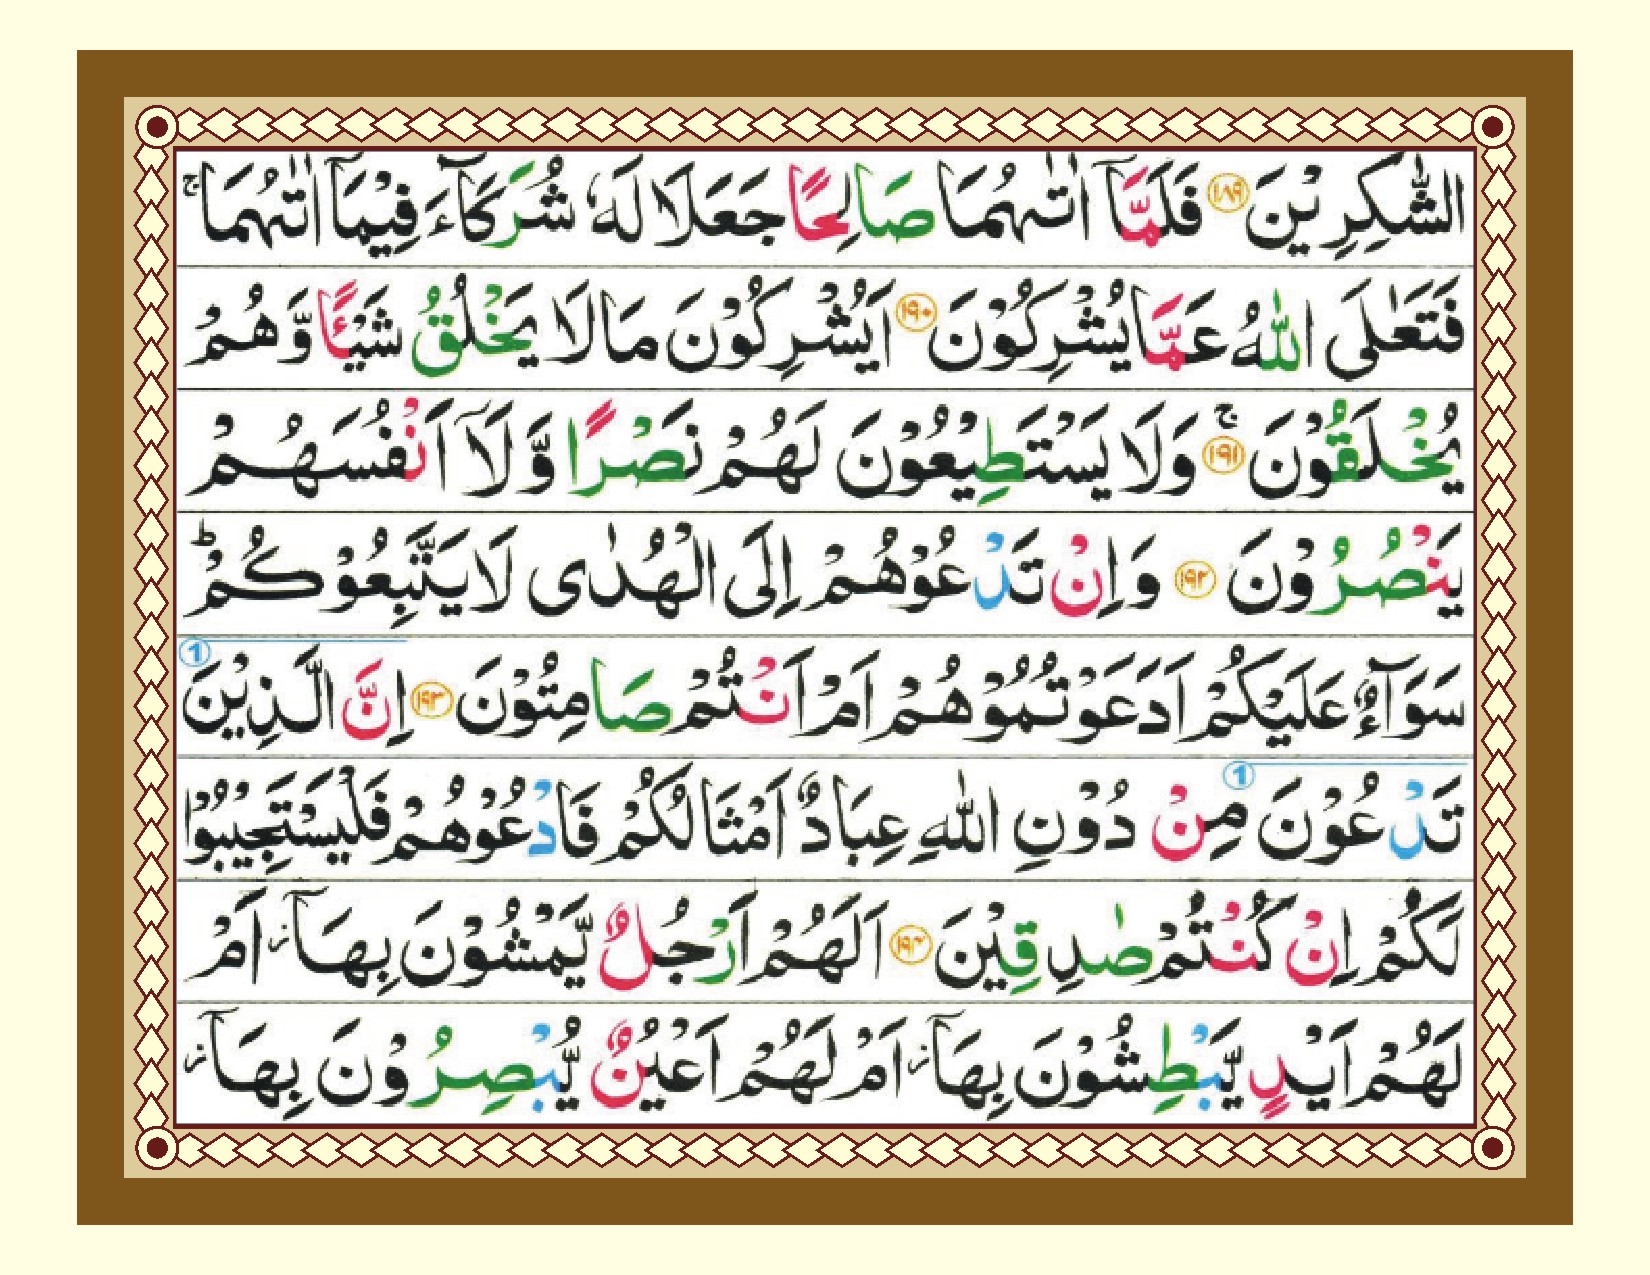 الشّٰكِرِيْنَ ﴿١٨٩﴾ فَلَمَّآ اٰتٰىهُمَا صَالِحًا جَعَلَا لَهٗ شُرَكَآءَ فِيْمَآ اٰتٰىهُمَا ۚ
فَتَعٰلَى اللّٰهُ عَمَّا يُشْرِكُوْنَ ﴿١٩٠﴾ اَيُشْرِكُوْنَ مَا لَا يَخْلُقُ شَيْئًا وَّهُمْ
يُخْلَقُوْنَ ۚ ﴿١٩١﴾ وَلَا يَسْتَطِيْعُوْنَ لَهُمْ نَصْرًا وَّلَآ اَنْفُسَهُمْ
يَنْصُرُوْنَ ﴿١٩٢﴾ وَاِنْ تَدْعُوْهُمْ اِلَى الْهُدٰى لَا يَتَّبِعُوْكُمْ ؕ
سَوَآءٌ عَلَيْكُمْ اَدَعَوْتُمُوْهُمْ اَمْ اَنْتُمْ صَامِتُوْنَ ﴿١٩٣﴾ اِنَّ الَّذِيْنَ 1
تَدْعُوْنَ 1 مِنْ دُوْنِ اللّٰهِ عِبَادٌ اَمْثَالُكُمْ فَادْعُوْهُمْ فَلْيَسْتَجِيْبُوْا
لَكُمْ اِنْ كُنْتُمْ صٰدِقِيْنَ ﴿١٩٤﴾ اَلَهُمْ اَرْجُلٌ يَّمْشُوْنَ بِهَآ ز اَمْ
لَهُمْ اَيْدٍ يَّبْطِشُوْنَ بِهَآ ز اَمْ لَهُمْ اَعْيُنٌ يُّبْصِرُوْنَ بِهَآ ز